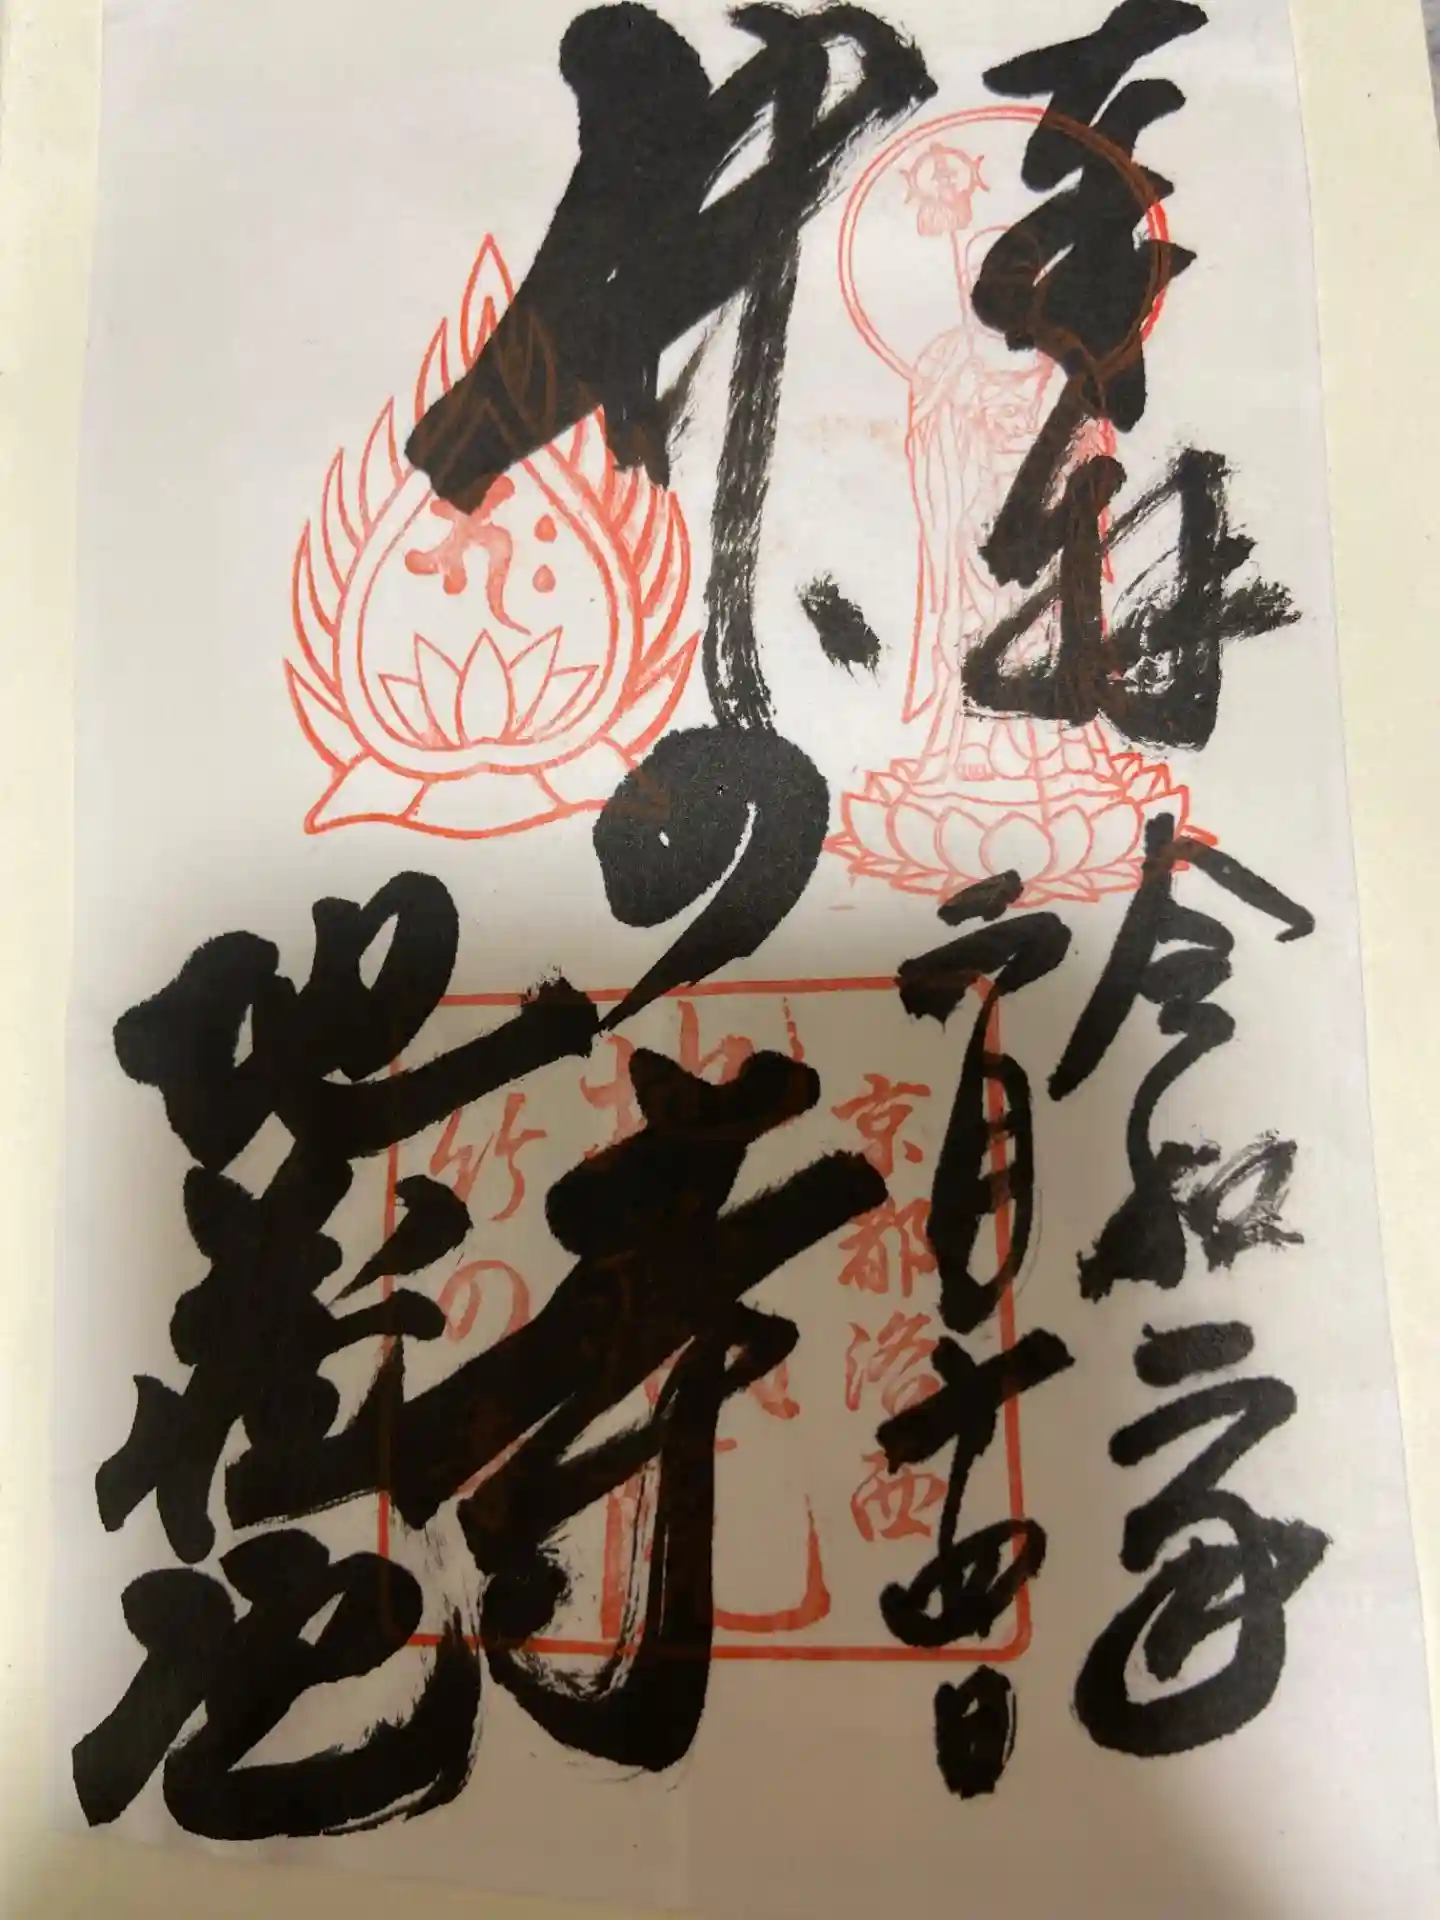 奉拝
令和二年
二月十四日
竹の寺
地蔵院
京都洛西
地蔵院
竹の寺